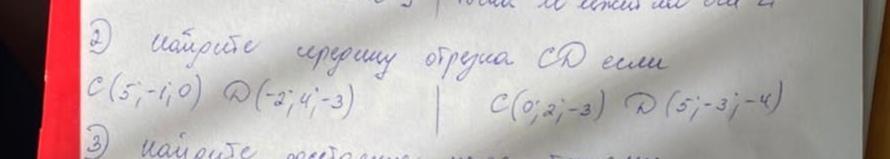 2) Найдите середину отрезка CD если
C(5;-1;0) D(-2;4;-3) | C(0;2;-3) D(5;-3;-4)
3) Найдите